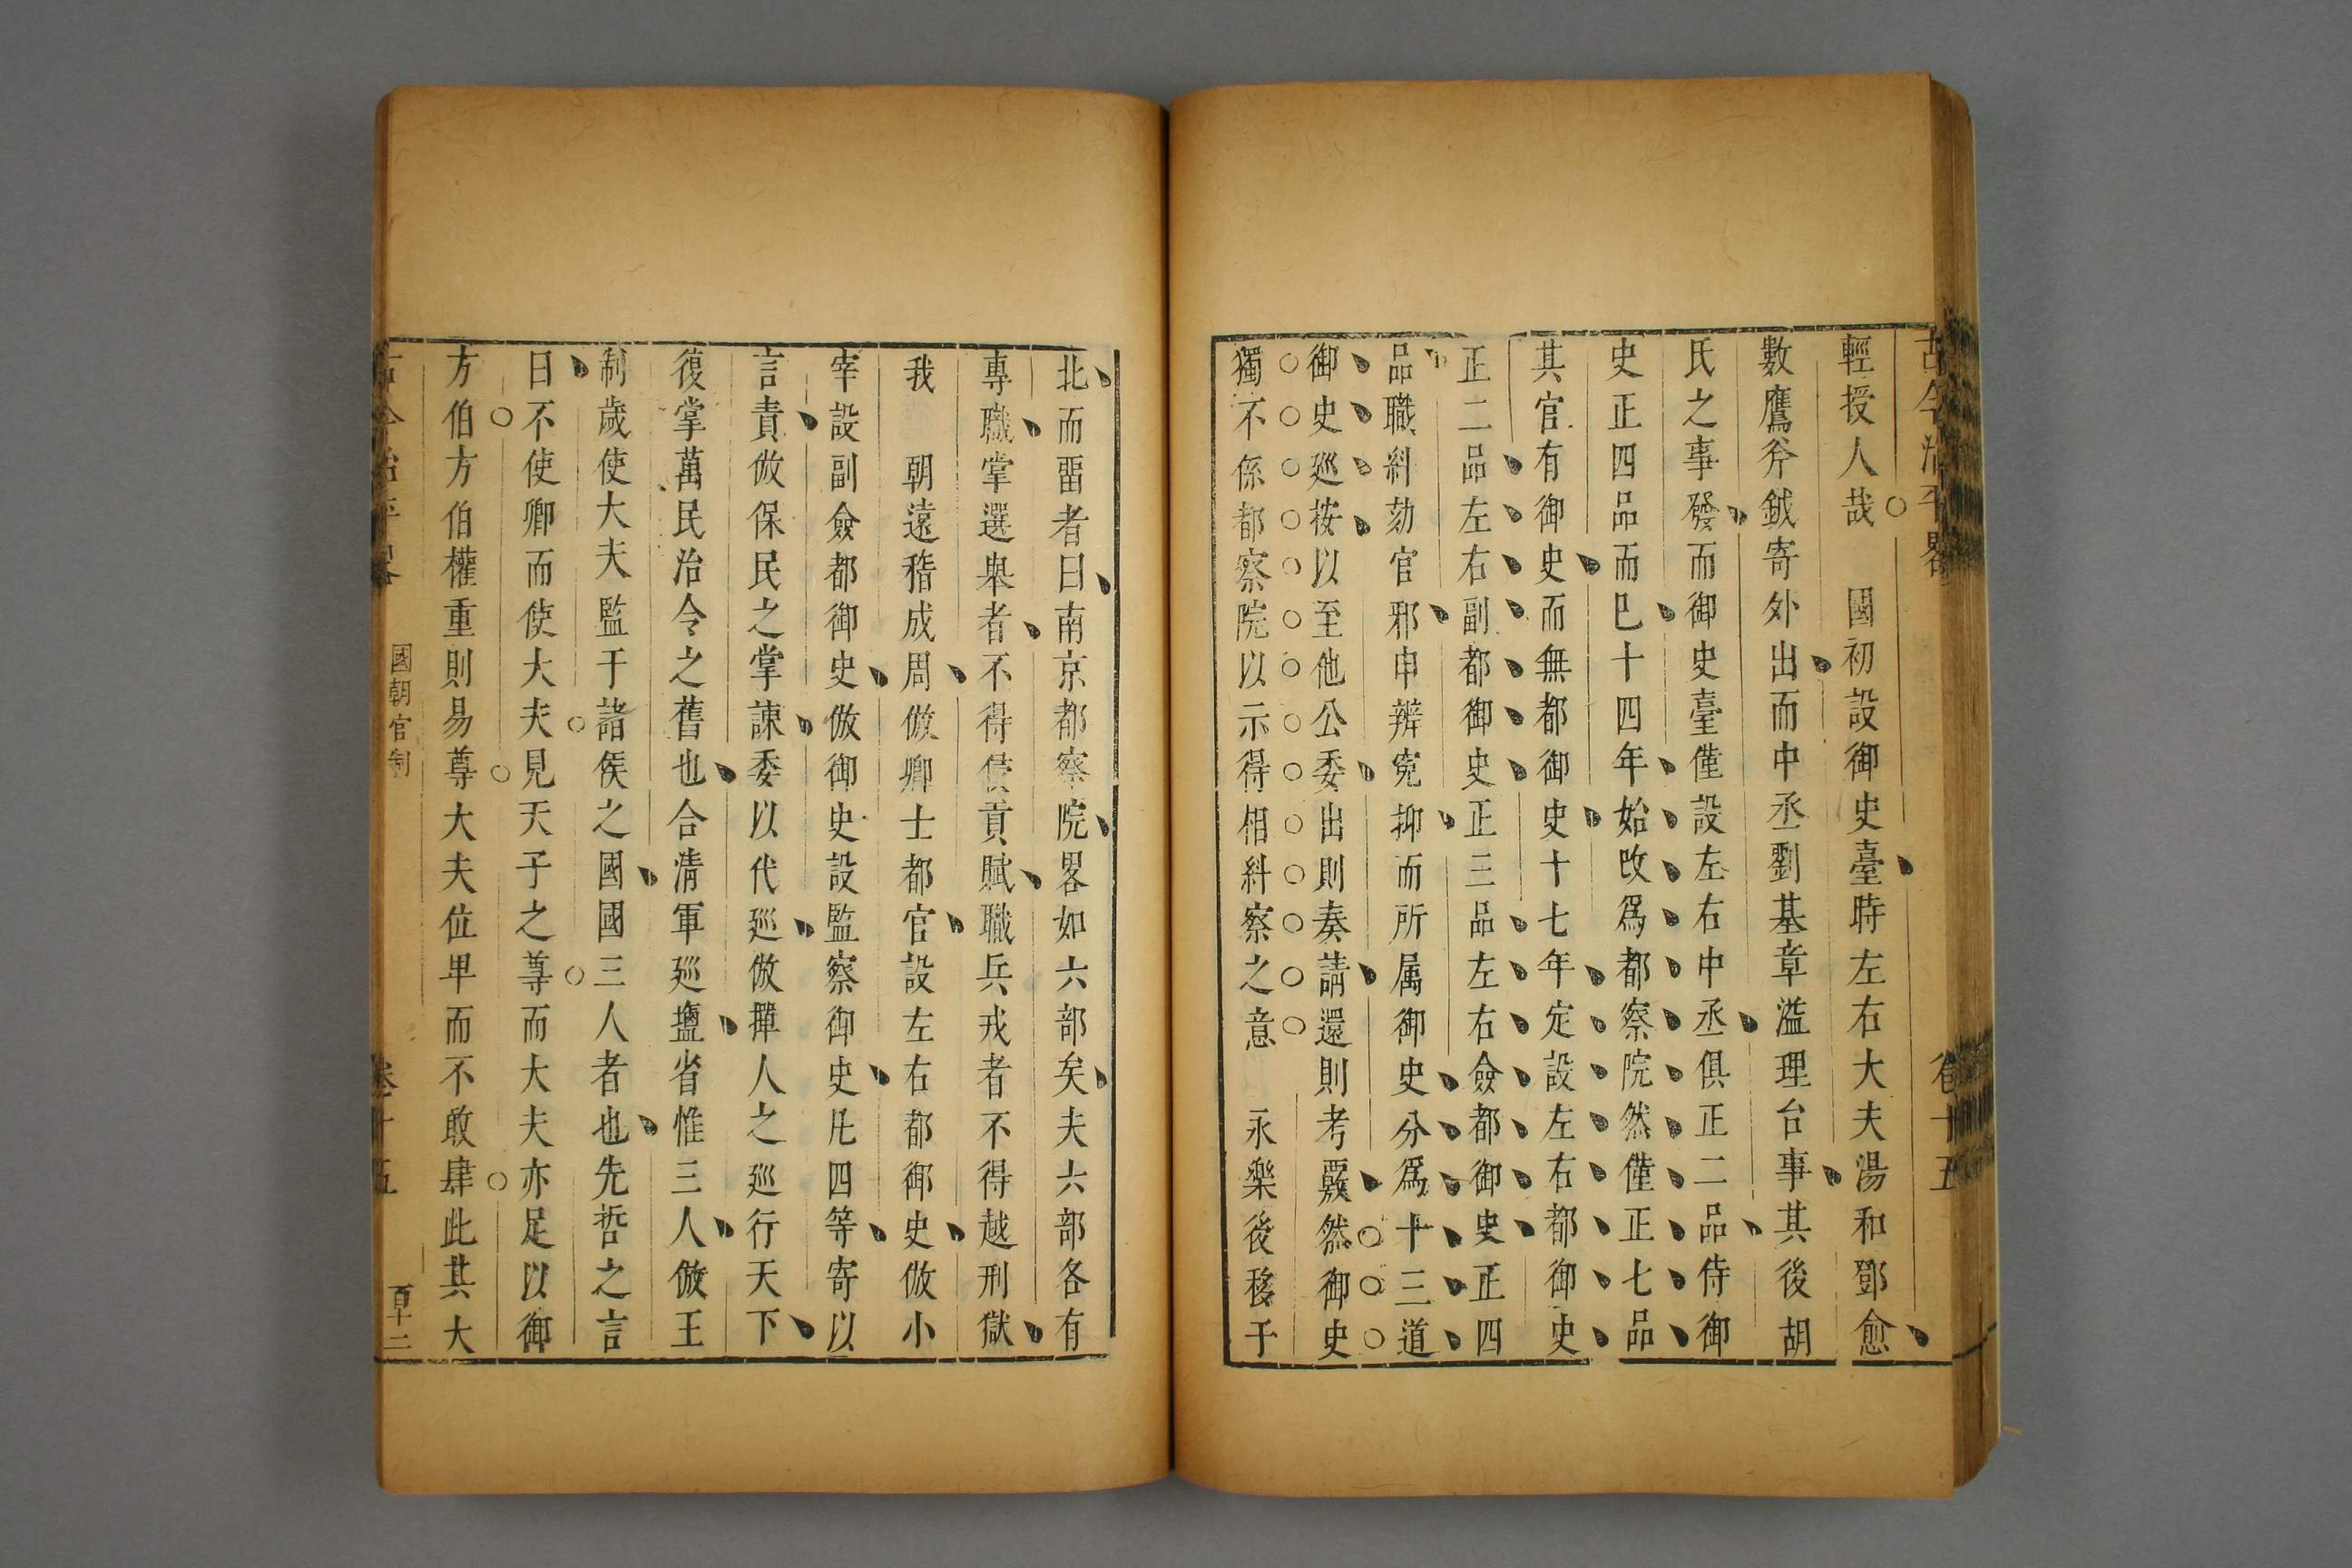 古今治平畧 卷十五
輕授人哉 國初設御史臺時左右大夫湯和鄧愈
數鷹斧鉞寄外出而中丞劉基章溢理台事其後胡
氏之事發而御史臺僅設左右中丞俱正二品侍御
史正四品而已十四年始改爲都察院然僅正七品
其官有御史而無都御史十七年定設左右都御史
正二品左右副都御史正三品左右僉都御史正四
品職糾劾官邪申辨寃抑而所属御史分爲十三道
御史廵按以至他公委出則奏請還則考覈然御史
獨不係都察院以示得相糾察之意 永樂後移于
北而畱者曰南京都察院畧如六部矣夫六部各有
專職掌選舉者不得侵貢賦職兵戎者不得越刑獄
我 朝遠稽成周倣卿士都官設左右都御史倣小
宰設副僉都御史倣御史設監察御史凡四等寄以
言責倣保民之掌諫委以代廵倣撣人之廵行天下
復掌萬民治令之舊也合清軍廵鹽省惟三人倣王
制歲使大夫監于諸侯之國國三人者也先哲之言
曰不使卿而使大夫見天子之尊而大夫亦足以御
方伯方伯權重則易尊大夫位卑而不敢肆此其大
古今治平畧 國朝官制 卷十五 百十二